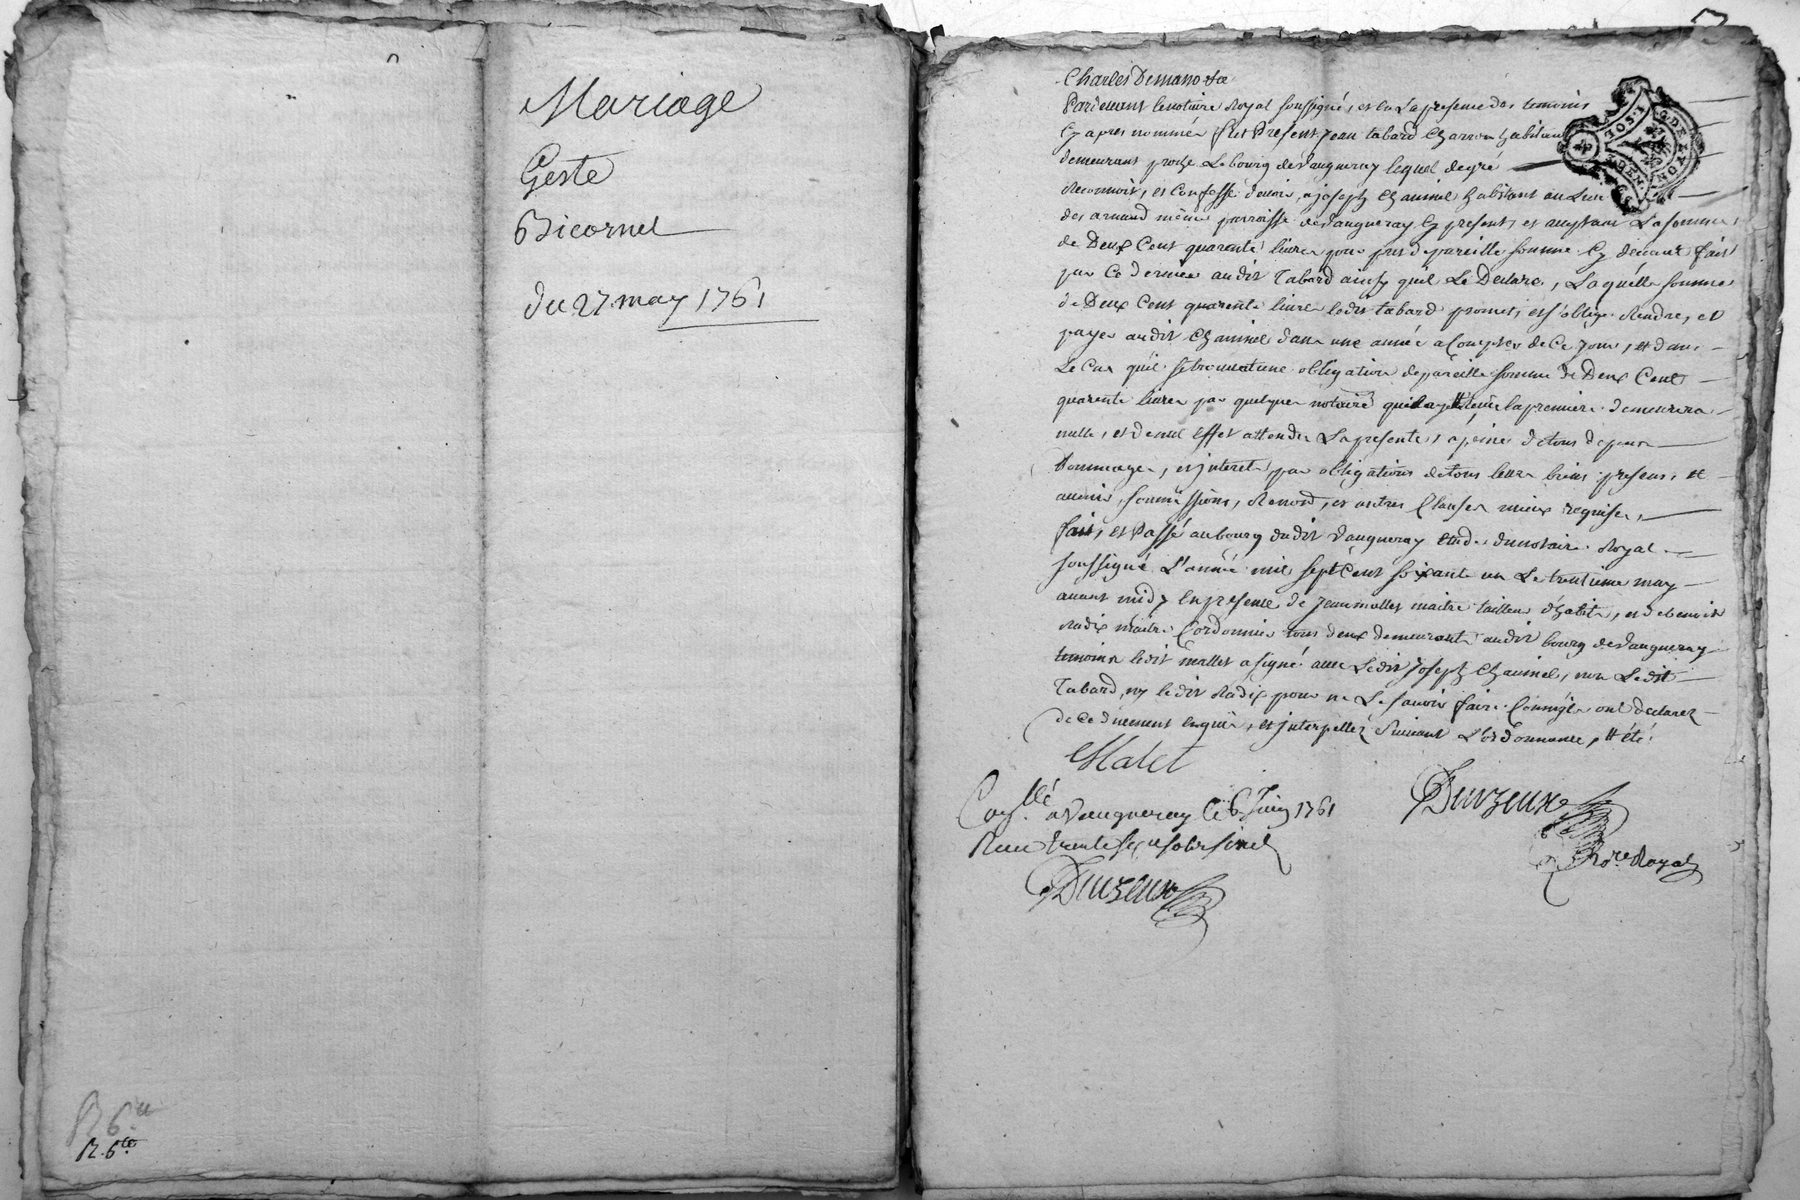 Mariage
Geste
Bicornet
du 27 may 1761
R 6.tt
R. 6.tt
Charles
Pardevant le notaire Royal soussigné, et en La presence des temoins
Cy apres nommés fut Present Jean tabard Charron habitant
demeurant proche Le bourg de Vaugneray lequel de gré
Reconnoit, et Confesse devoir, a joseph Chaumel habitant au Lieu
des arnaud même parroisse de Vaugneray Cy present, et acceptant La somme
de Deux Cent quarante livres pour pret de pareille somme Cy devant fait
par Ce dernier audit Tabard ainsy quil Le Declare, Laquelle somme
de Deux Cent quarente livres ledit tabard promet, et s'oblige Rendre, et
payer audit Chaumel dans une année a Compter de Ce jour, et dans
Le Cas quil se trouvat une obligation de pareille somme de Deux Cent
quarente livres par quelques notaire la premiere demeurera
nulle, et de nul effet attendu La presente, a peine de tous depens
Dommages, et jnterets par obligations de tous leurs biens presens, et
avenir, soumissions, Renond, et autres Clauses mieux requises,
fait, et Passé au bourg dudit Vaugneray Etude du notaire Royal
soussigné L'année mil sept Cent soixante un Le trentieme may
avant midy en presence de Jean mallet maitre tailleur d'habits, et de benoit
Radix maitre Cordonnier tous deux demeurants audit bourg de Vaugneray
temoins ledit mallet a signé avec Ledit Joseph Chaumel, non Ledit
Tabard, ny ledit Radix pour ne Le savoir faire Comme ont declarez
de Ce duement enquis, et jnterpellez Suivant L'ordonnance, # été
Malet
Conllé. a Vaugneray le 6 Juin 1761
Reçu trente six sols
Duvzeux
Duvzeux
Nore. Royal